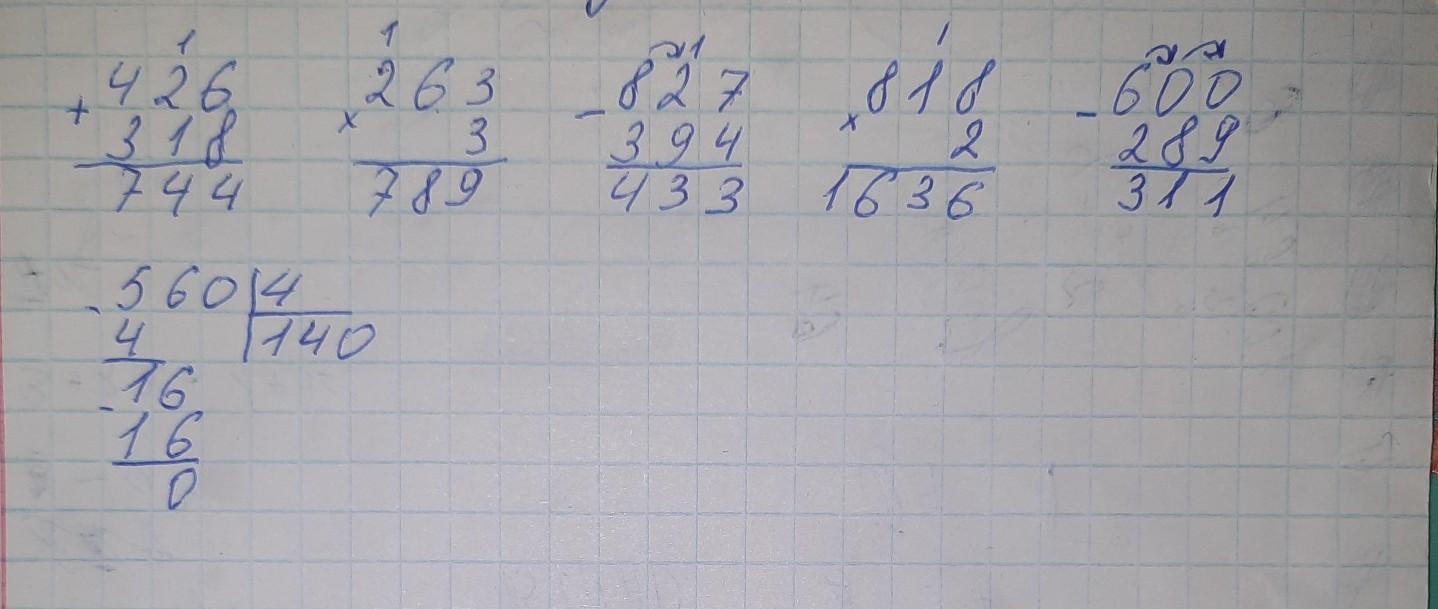 1 1 1 1
426 263 827 818 600
+ × - × -
318 3 394 2 289
744 789 433 1636 311
- 560 4
4 140
- 16
16
0